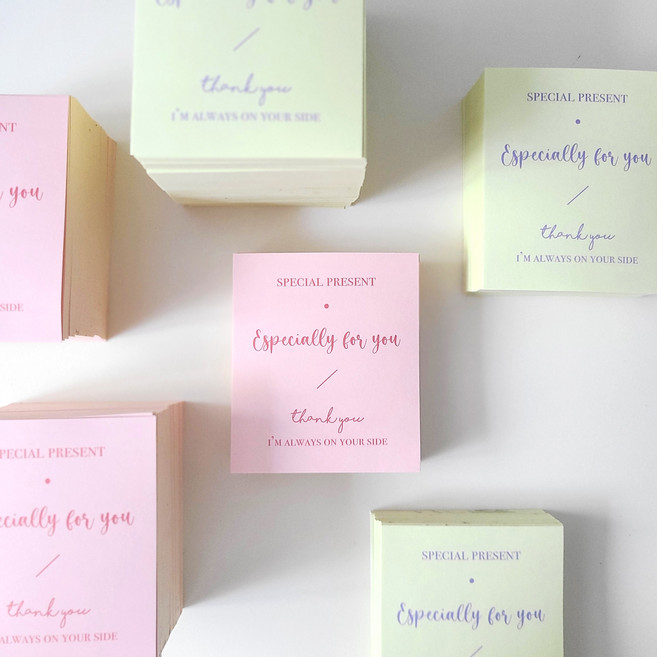 Especially for you
thank you
I'M ALWAYS ON YOUR SIDE
SPECIAL PRESENT
Especially for you
thank you
I'M ALWAYS ON YOUR SIDE
you
SIDE
SPECIAL PRESENT
Especially for you
thank you
I'M ALWAYS ON YOUR SIDE
PECIAL PRESENT
ecially for you
thank you
ALWAYS ON YOUR SIDE
SPECIAL PRESENT
Especially for you